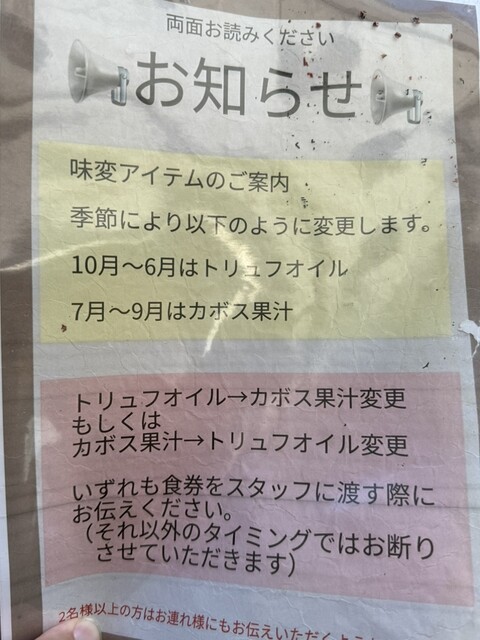 両面お読みください
お知らせ
味変アイテムのご案内
季節により以下のように変更します。
10月～6月はトリュフオイル
7月～9月はカボス果汁
トリュフオイル→カボス果汁変更
もしくは
カボス果汁→トリュフオイル変更
いずれも食券をスタッフに渡す際に
お伝えください。
（それ以外のタイミングではお断り
させていただきます）
2名様以上の方はお連れ様にもお伝えいただく